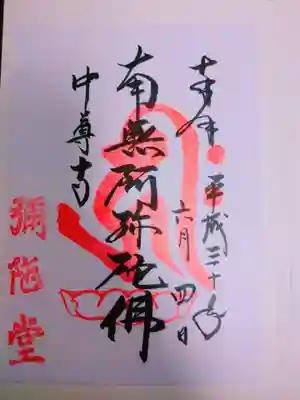 奉拝
平成三十年
六月四日
南無阿弥陀佛
中尊寺
彌陀堂